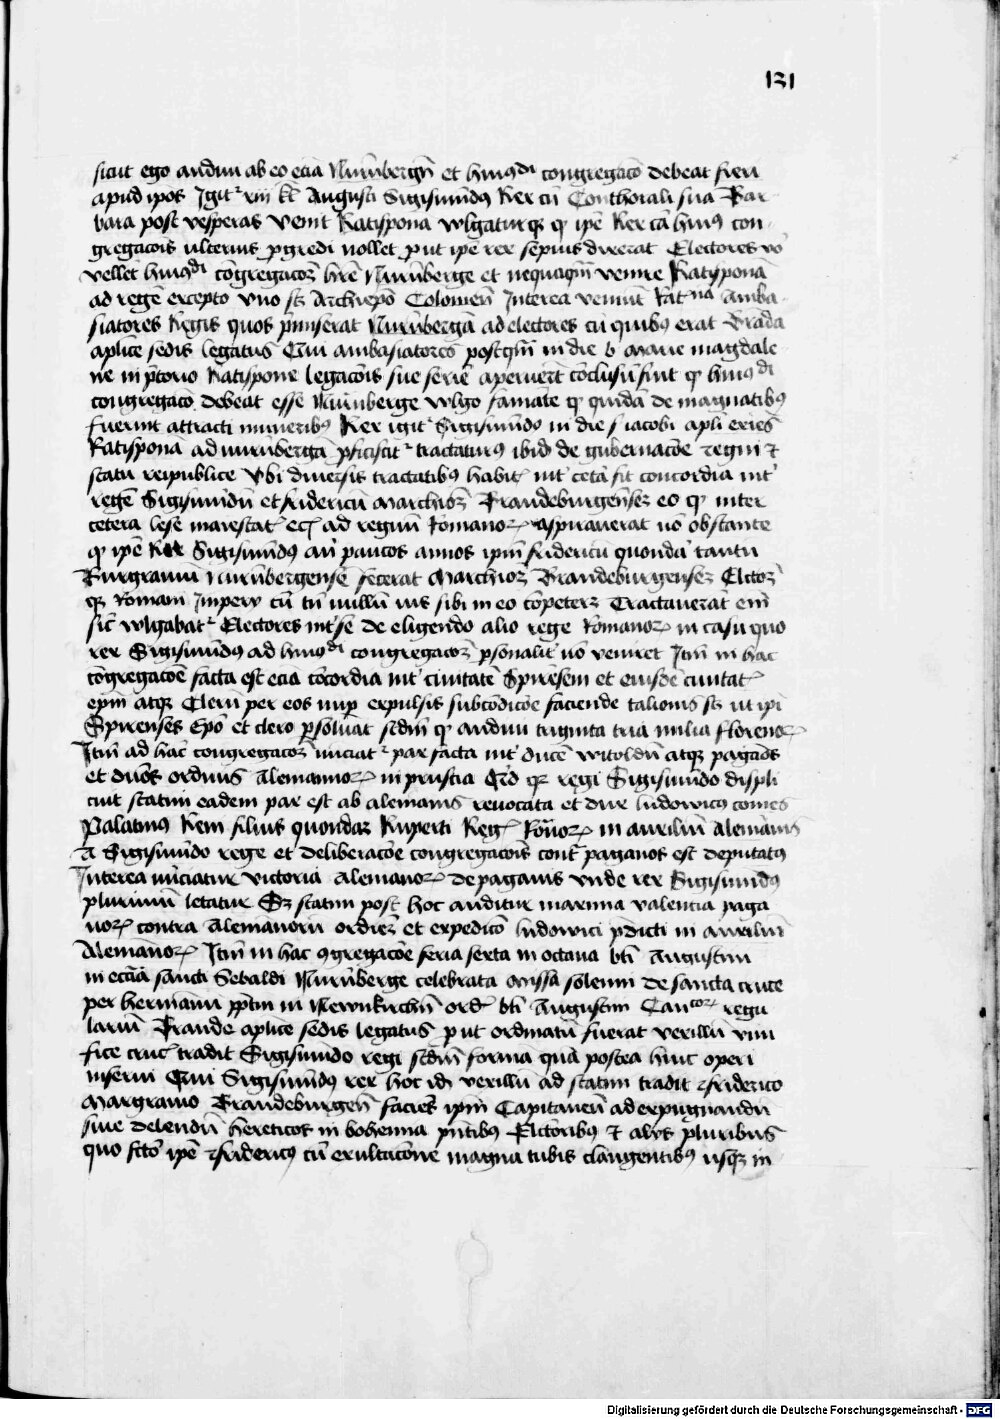 131
sicut ego audiui ab eo ecia Nurnbergn̄ et huiusdi congregaco debeat fieri
apud ipos Igitr xiiij kl Augusti Sigismundus Rex cū Conthorali sua Bar
bara post vesperas venit Ratispona wlgaturqz qz ipē Rex cā huius con
gregacois ulterius pgredi nollet put ipē rex sepius dixerat Electores vo
vellet huiusdi cōgregacoꝫ hr̄e Nurnberge et nequaqm̄ venire Ratisponā
ad regē excepto vno sꝫ Archiepō Coloniēn Interea veniūt Ratna Amba
siatores Regis quos pmiserat Nurnbergā ad electores cū quibus erat Branda
aplice sedis legatus Qui ambasiatores postqm̄ in die b Marie magdale
ne in ptorio Ratispone legacois sue seriē aperuert cōclusū fuit qz huiusdi
congregaco debeat esse Nurnberge wlgo famāte qz quidā de magnatibus
fuerint attracti muneribus Rex igitr Sigismūdus in die s iacobi apli exiēs
Ratisponā ad nurnbergā pficiscitr tractaturus ibid de gubernacōe regni et
statu reipublice Vbi diuersis tractatibus habitꝭ int ceta fit concordia int
regē Sigismūdū et fridericū Marchioꝫ Brandeburgēnseꝫ eo qz inter
cetera lese maiestatꝭ ad regnū Romanoꝝ aspirauerat nō obstante
qz ipē Rex Sigismūdus an paucos annos ipm̄ fridericū quondā tantū
Burgrauiū Nurnbergensē fecerat Marchioꝫ Brandeburgenseꝫ Elctoꝫ
qz Romani Impery cū tn̄ nullū ius sibi in eo cōpeteret Tractauerāt em̄
sic wlgabatr Electores int se de eligendo alio rege Romanoꝝ in casu quo
rex Sigismūdus ad huiusdi congregacoꝫ psonalit nō veniret Itm̄ in hac
cōgregacōe facta est ecia cōcordia int ciuitatē Spirēsem et eiusdē ciuitatꝭ
epm̄ atqz Clerū per eos nup expulsis sub cōdicōe faciende talionis sꝫ ut ipi
Spirenses Epō et clero psoluāt scdm̄ qz audiui triginta tria milia florenoꝝ
Itm̄ ad hāc congregacoꝫ nūciatr pax facta int ducē witoldū atqz paganos
et dnōs ordinis Alemannoꝝ in prusia Qd qz regi Sigismūdo displi
cuit statim eadem pax est ab alemanis reuocata et dux ludowicus comes
Palatinus Reni filius quondaꝫ Ruperti Regꝭ Romoꝝ in auxiliū Alemānis
a Sigismūdo rege et deliberacōe congregacois contra paganos est deputatus
Interea nūciatur victoria Alemanoꝝ de paganis vnde rex Sigismūdus
plurimū letatur Sꝫ statim post hoc auditur maxima valencia paga
noꝝ contra Alemanorū ordinē et expedicō ludowici pdicti in auxiliū
Alemānoꝝ Itm̄ in hac ꝯgregacōe feria sexta in octaua bti Augustini
in eccīa sancti Sebaldi Nurnberge celebrata missa solenni de sancta cruce
per hermānū pptm̄ in Newnkirchn̄ ordꝭ bti Augustini Canicorꝝ regu
lariū Brande aplice sedis legatus put ordinatū fuerat vexillū viui
fice crucꝭ tradit Sigismūdo regi scdm̄ formā quā postea huic operi
inserui Qui Sigismūdus rex hoc id vexillū ad statim tradit friderico
Margrauio Brandeburgen̄ facies ipm̄ Capitaneū ad expugnandū
siue delendū hereticos in bohemia pntibus Elctoribus et alys pluribus
quo fcto ipē fridericus cū exultacione magna tubis clangentibus usqz in
Digitalisierung gefördert durch die Deutsche Forschungsgemeinschaft - DFG